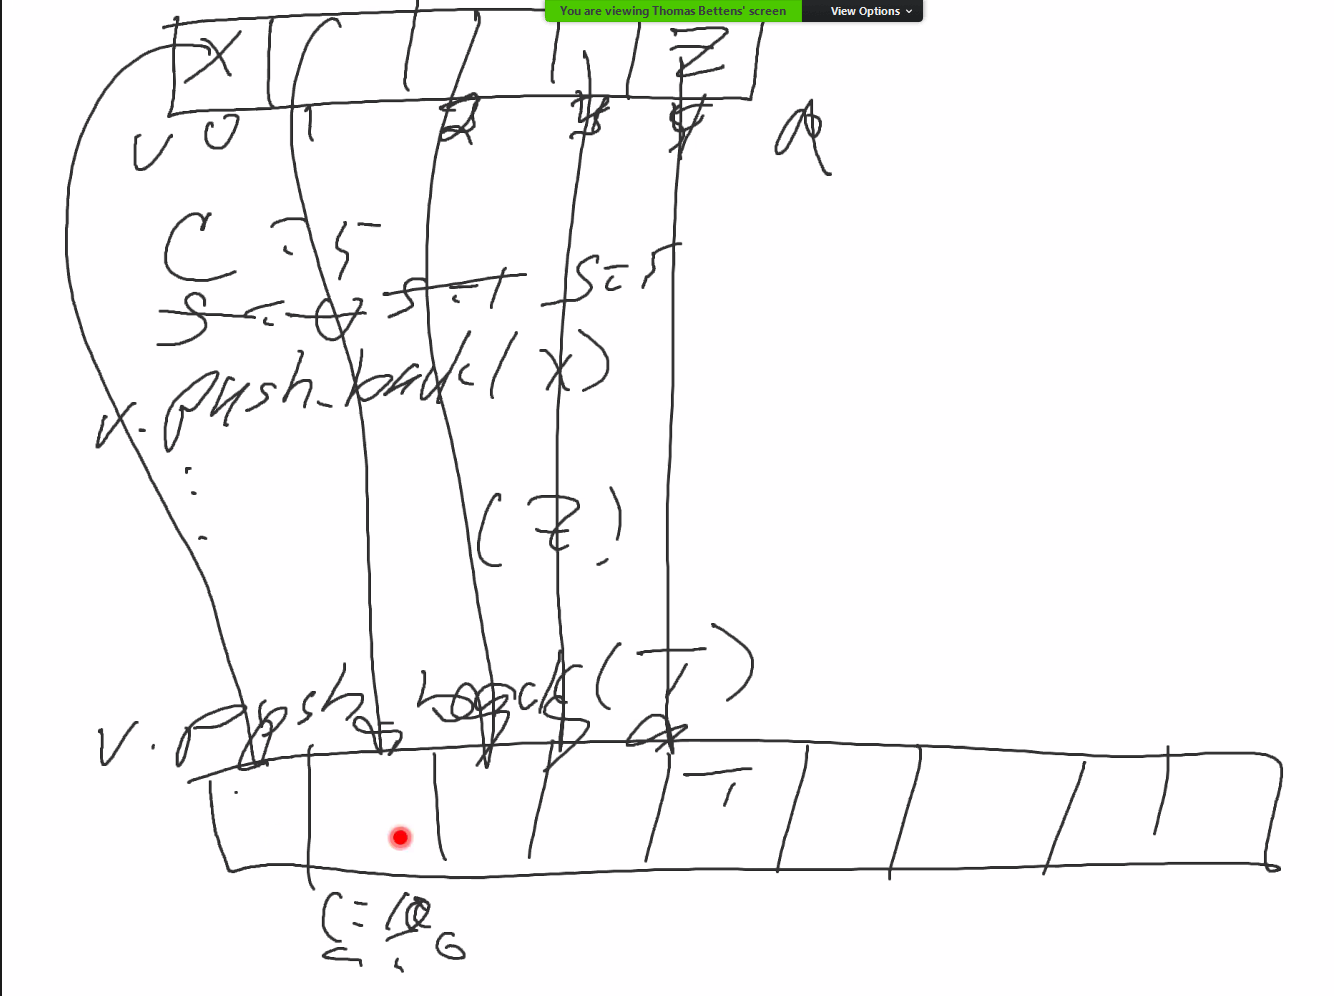 You are viewing Thomas Bettens' screen View Options
X Z
v 0 1 2
C = 5
S = 0 S = 1 S = 5
v. push_back(X)
(Z)
v. push_back(T)
T
C = 10